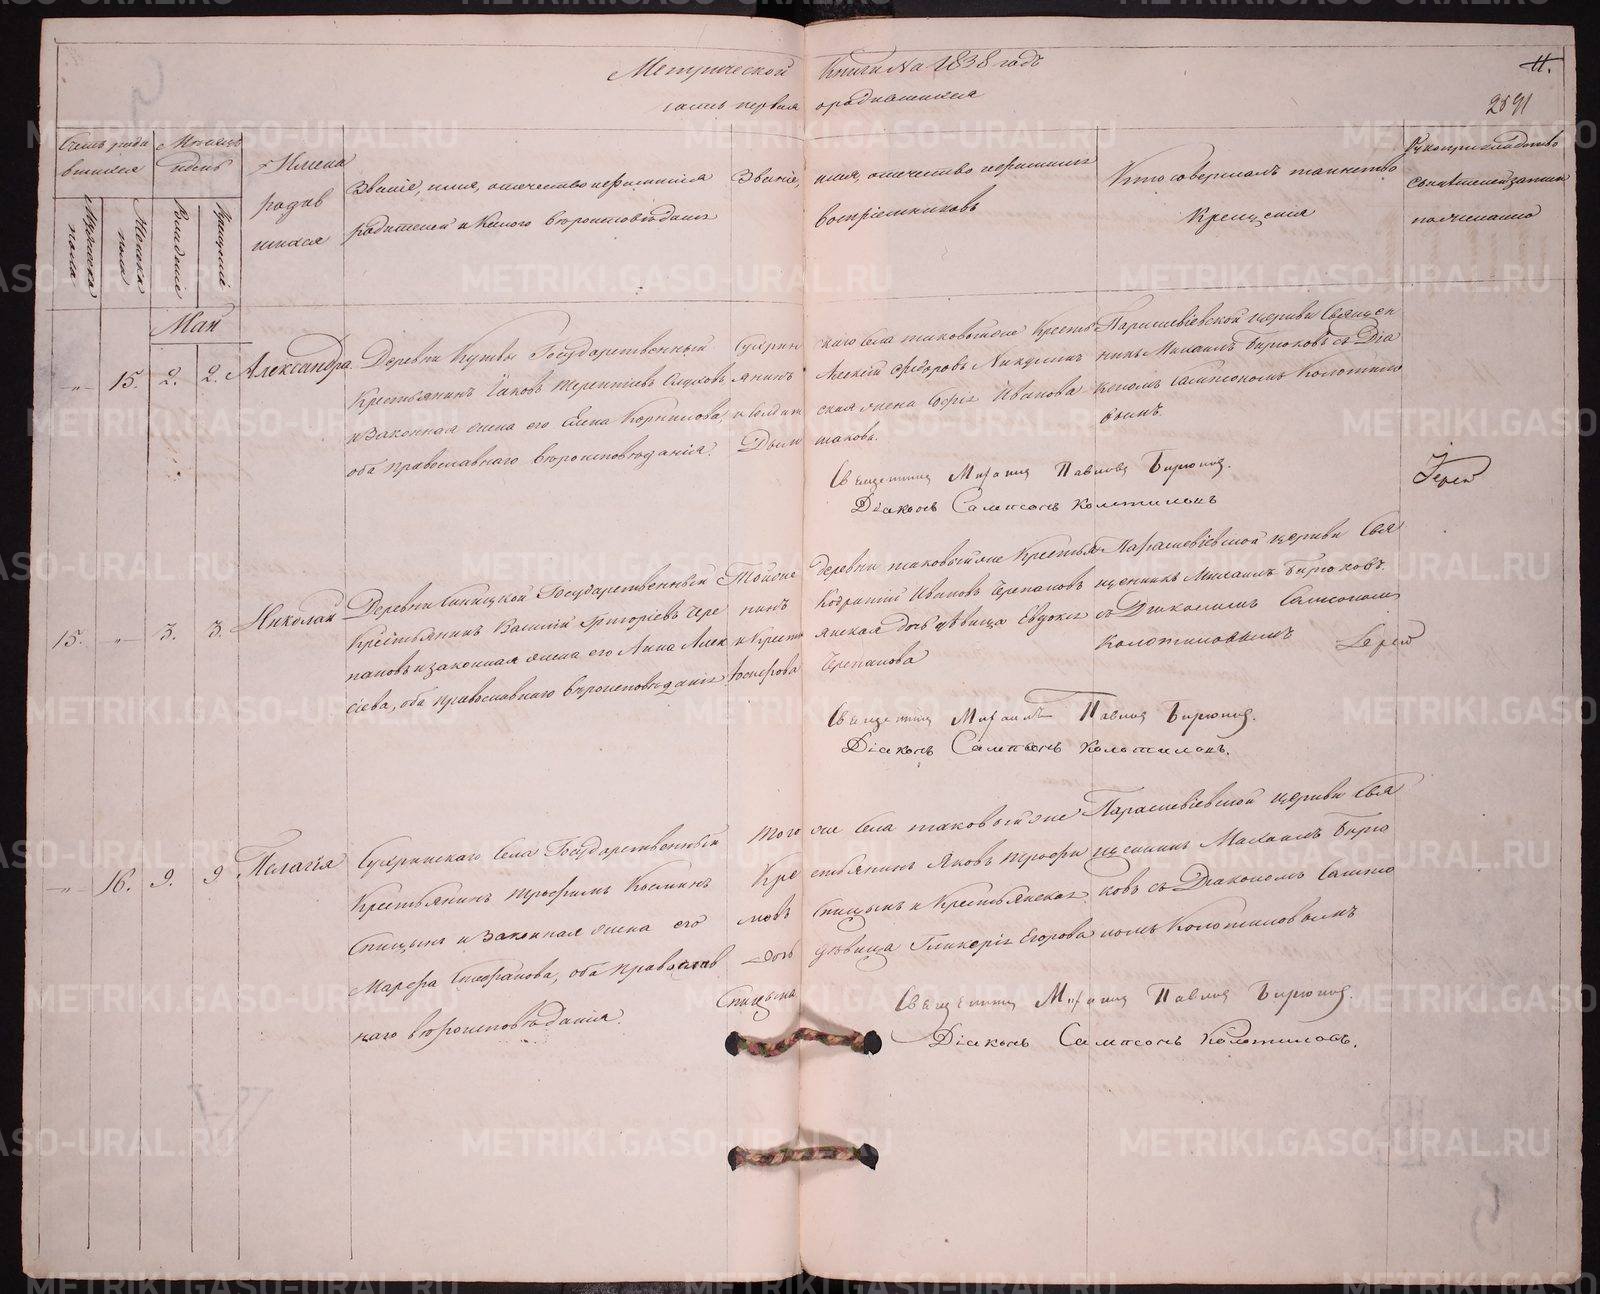 Метрической Книги на 1838 годъ
11.
часть первая о родившихся
2891
Счетъ родившихся
Мужеска пола
Женска пола
Мѣсяцъ и день
Рожденiе
Крещенiе
Имена родившихся
Званiе, имя, отечество и фамилiя
родителей и какого вѣроисповѣданiя
Званiе, имя, отечество и фамилiя
воспрiемниковъ
Кто совершалъ таинство
Крещенiя
Рукоприкладство
свидѣтелей записи
по желанiю
Май
15. 2. 2. Александра
Деревни Государственный
Крестьянинъ Iаковъ Терентiевъ
и законная жена его Елена Корнилова,
оба православнаго вѣроисповѣданiя.
Сугринскаго села таковый же Кресть
янинъ Алексiй Ѳедоровъ
и Солдатская жена Софiя Иванова
Парасковiевской церкви Священ
никъ Михаилъ Бирюковъ съ Дiа
кономъ Сампсономъ Колотило
вымъ
Священникъ Михаилъ Павловъ Бирюковъ.
Дiаконъ Сампсонъ Колотиловъ
15. 3. 3. Николай
Деревни Государственный
Крестьянинъ Василiй Григорiевъ Чере
пановъ и законная жена его Анна Алек
сiева, оба православнаго вѣроисповѣданiя
Той же деревни таковый же Крестья
нинъ Ивановъ Черепановъ
и Крестьянская дочь дѣвица Евдокiя
Черепанова
Парасковiевской церкви Свя
щенникъ Михаилъ Бирюковъ
съ Дiакономъ Сампсономъ
Колотиловымъ
Священникъ Михаилъ Павловъ Бирюковъ.
Дiаконъ Сампсонъ Колотиловъ.
16. 9. 9 Пелагiя
Сугринскаго села Государственный
Крестьянинъ Трофимъ Косминъ
Спицынъ и законная жена его
Марѳа Стефанова, оба православ
наго вѣроисповѣданiя.
Того же села таковый же
Крестьянинъ Яковъ Трофи
мовъ Спицынъ и Крестьянская
дочь дѣвица Гликерiя Егорова
Спицына
Парасковiевской церкви Свя
щенникъ Михаилъ Бирю
ковъ съ Дiакономъ Сампсо
номъ Колотиловымъ
Священникъ Михаилъ Павловъ Бирюковъ.
Дiаконъ Сампсонъ Колотиловъ.
METRIKI.GASO-URAL.RU